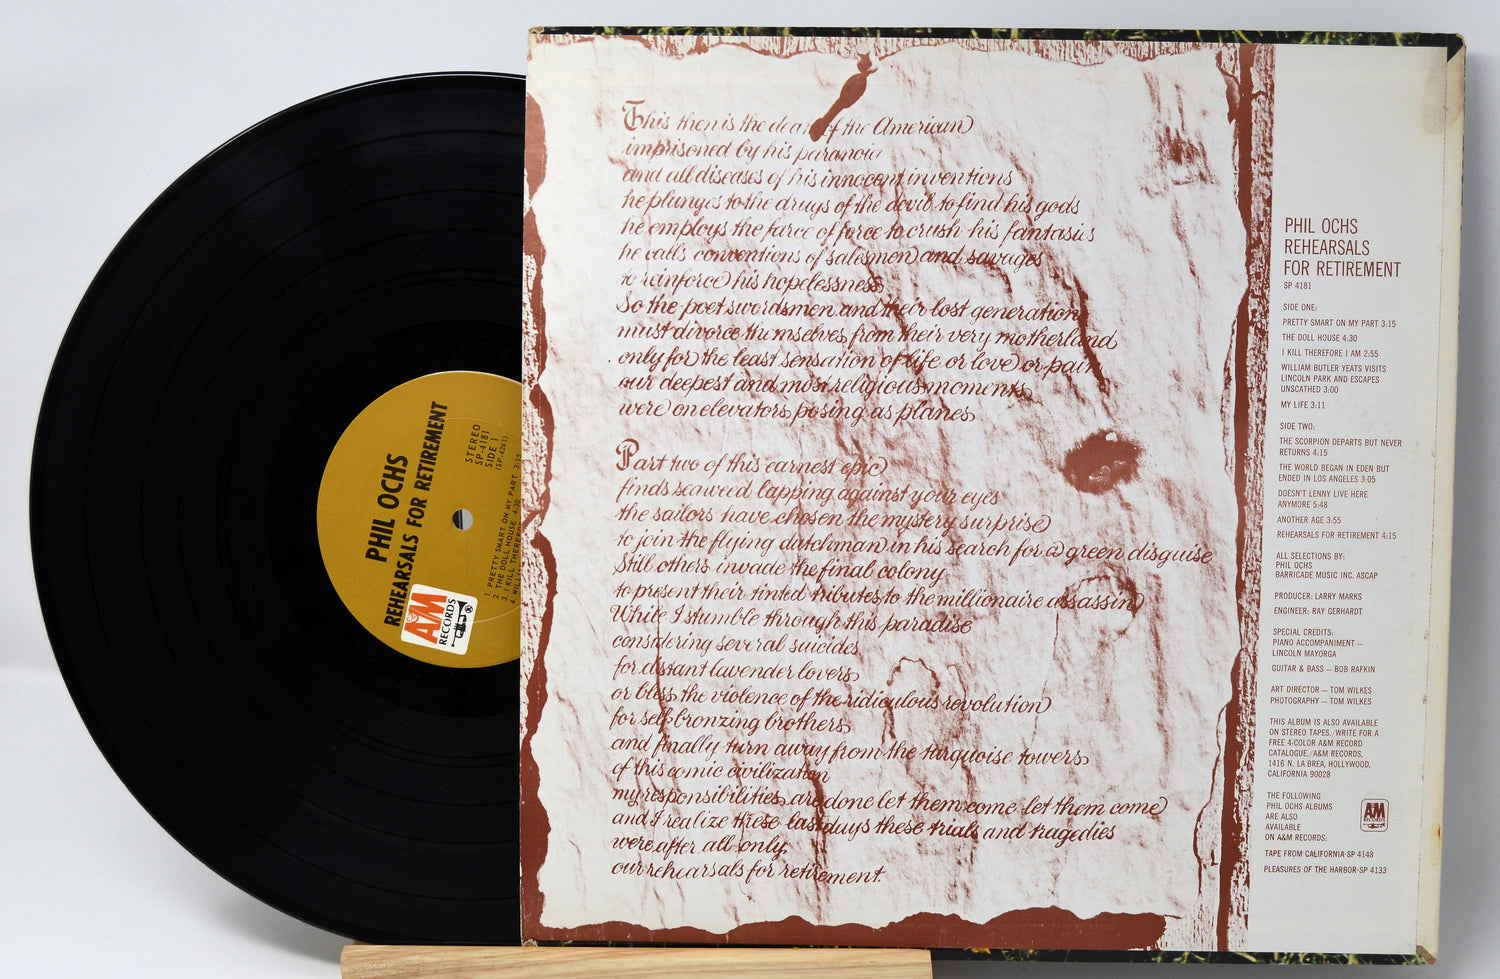 PHIL OCHS
REHEARSALS FOR RETIREMENT
STEREO
SP-4181
SIDE 1
(SP-4261)
1. PRETTY SMART ON MY PART 3:15
2. THE DOLL HOUSE 4:30
3. I KILL THEREFOR
4. WILLI
A&M
RECORDS
®
This then is the death of the American
imprisoned by his paranoia
and all diseases of his innocent inventions
he plunges to the drugs of the devil to find his gods
he employs the farce of force to crush his fantasies
he calls conventions of salesmen and savages
to reinforce his hopelessness
So the poet swordsmen and their lost generation
must divorce themselves from their very motherland
only for the least sensation of life or love or pain
our deepest and most religious moments
were on elevators posing as planes
Part two of this earnest epic
finds seaweed lapping against your eyes
the sailors have chosen the mystery surprise
to join the flying dutchman in his search for a green disguise
Still others invade the final colony
to present their tinted tributes to the millionaire assassin
While I stumble through this paradise
considering several suicides
for distant lavender lovers
or bless the violence of the ridiculous revolution
for self bronzing brothers
and finally turn away from the turquoise towers
of this comic civilization
my responsibilities are done let them come let them come
and I realize these last days these trials and tragedies
were after all only
our rehearsals for retirement.
PHIL OCHS
REHEARSALS
FOR RETIREMENT
SP 4181
SIDE ONE:
PRETTY SMART ON MY PART 3:15
THE DOLL HOUSE 4:30
I KILL THEREFORE I AM 2:55
WILLIAM BUTLER YEATS VISITS
LINCOLN PARK AND ESCAPES
UNSCATHED 3:00
MY LIFE 3:11
SIDE TWO:
THE SCORPION DEPARTS BUT NEVER
RETURNS 4:15
THE WORLD BEGAN IN EDEN BUT
ENDED IN LOS ANGELES 3:05
DOESN'T LENNY LIVE HERE
ANYMORE 5:48
ANOTHER AGE 3:55
REHEARSALS FOR RETIREMENT 4:15
ALL SELECTIONS BY:
PHIL OCHS
BARRICADE MUSIC INC. ASCAP
PRODUCER: LARRY MARKS
ENGINEER: RAY GERHARDT
SPECIAL CREDITS:
PIANO ACCOMPANIMENT —
LINCOLN MAYORGA
GUITAR & BASS — BOB RAFKIN
ART DIRECTOR — TOM WILKES
PHOTOGRAPHY — TOM WILKES
THIS ALBUM IS ALSO AVAILABLE
ON STEREO TAPES./WRITE FOR A
FREE 4-COLOR A&M RECORD
CATALOGUE./A&M RECORDS,
1416 N. LA BREA, HOLLYWOOD,
CALIFORNIA 90028
THE FOLLOWING
PHIL OCHS ALBUMS
ARE ALSO
AVAILABLE
ON A&M RECORDS:
A&M
RECORDS
TAPE FROM CALIFORNIA-SP 4148
PLEASURES OF THE HARBOR-SP 4133